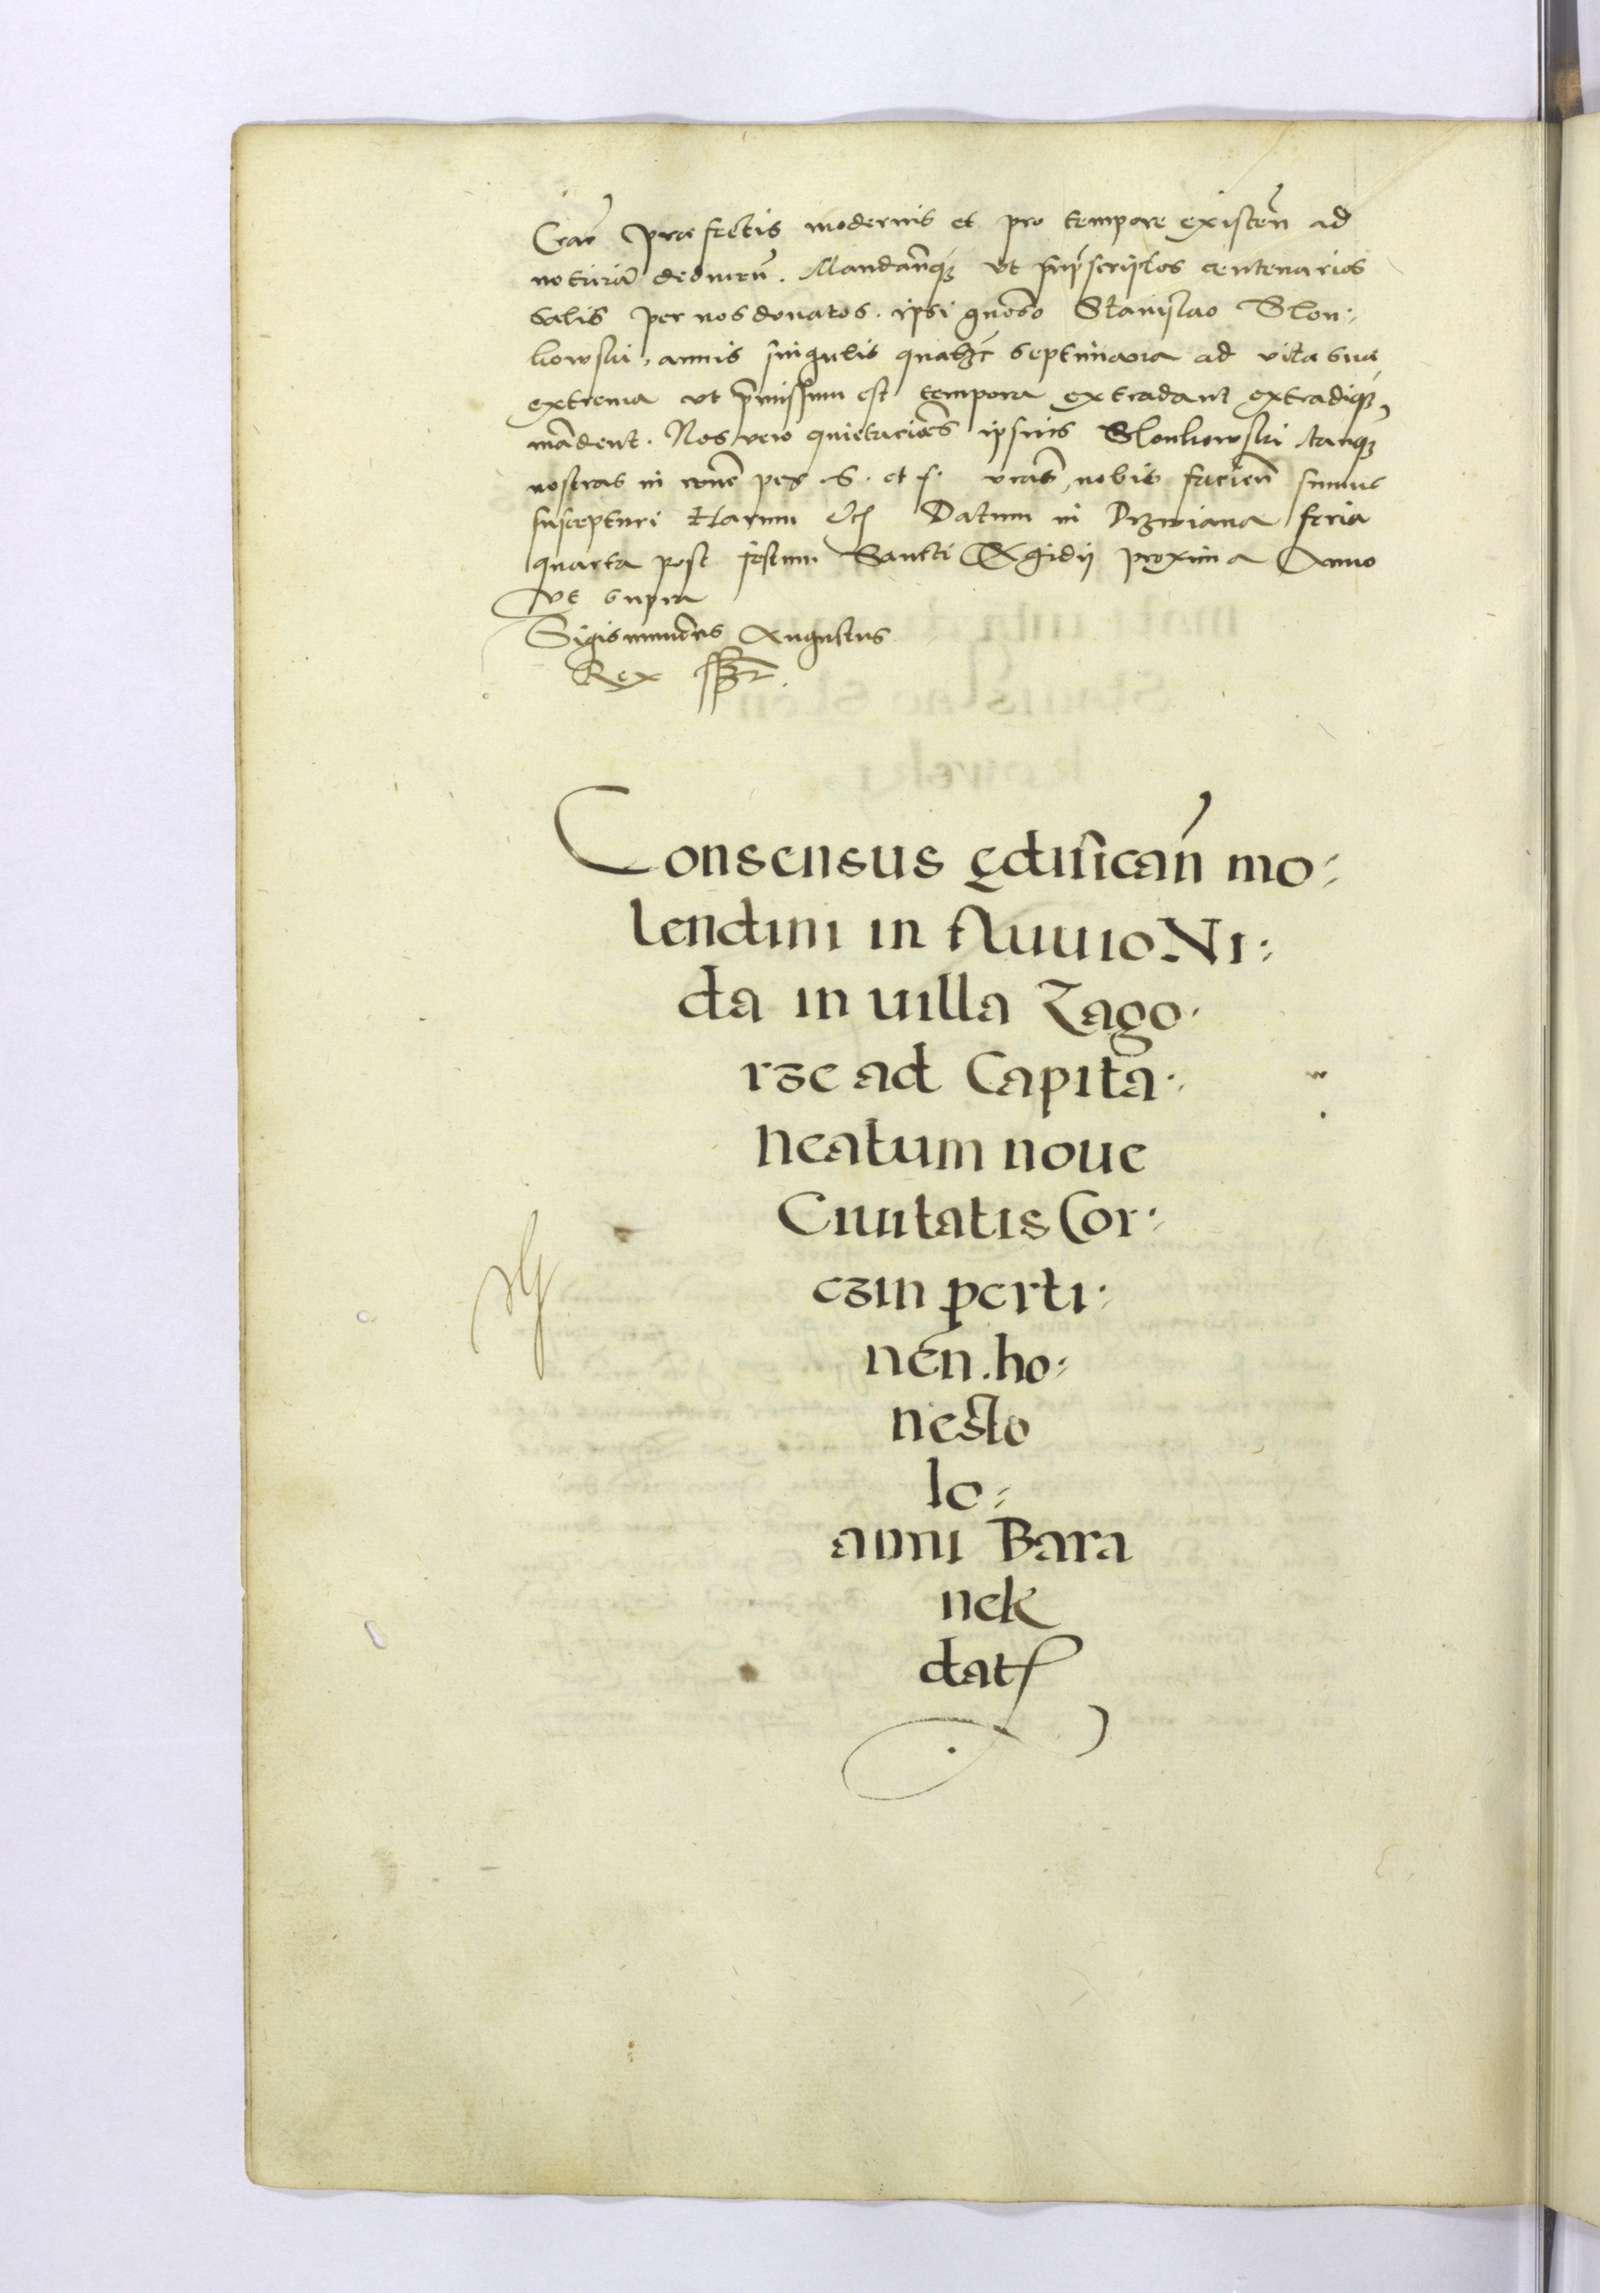 Crac̃ praefectis modernis et pro tempore existeñ ad
noticiã deducẽ. Mandamq̃ ut suprascriptos centenarios
salis per nos donatos. ipsi gnoso Stanislao Slon:
kowski, annis singulis septimana ad vitae sue
extrema ut p̃missum est tempora extradant extradiq̃,
mãdent. Nos vero quietaciões ipsius Slonkowski tanq̃
nostras in per S. et f. vras nobis facieñ sumus
suscepturi Harum Datum in feria
quarta post festum Sancti Egidii proxima Anno
ut supra
Sigismundus Augustus
Rex
Consensus ędificañ mo:
lendini in fluuio Ni:
da in uilla Zago:
rze ad Capita:
neatum noue
Ciuitatis Cor:
czin perti:
neñ. ho:
nesto
Io:
anni Bara
nek
dat̃